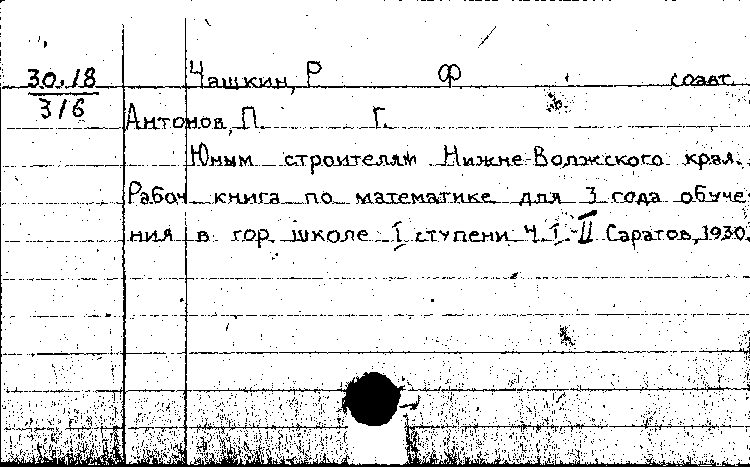 30.18
316
Чашкин, Р Ф соавт.
Антонов, П. Г.
Юным строителям Нижне-Волжского края.
Рабоч книга по математике для 3 года обуче-
ния в гор школе I ступени Ч. I-II Саратов, 1930.